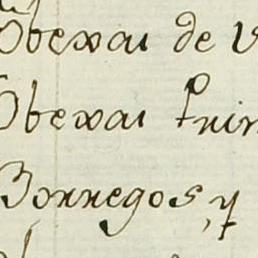 Obexas de V
Obexas Prin
Borregos, y